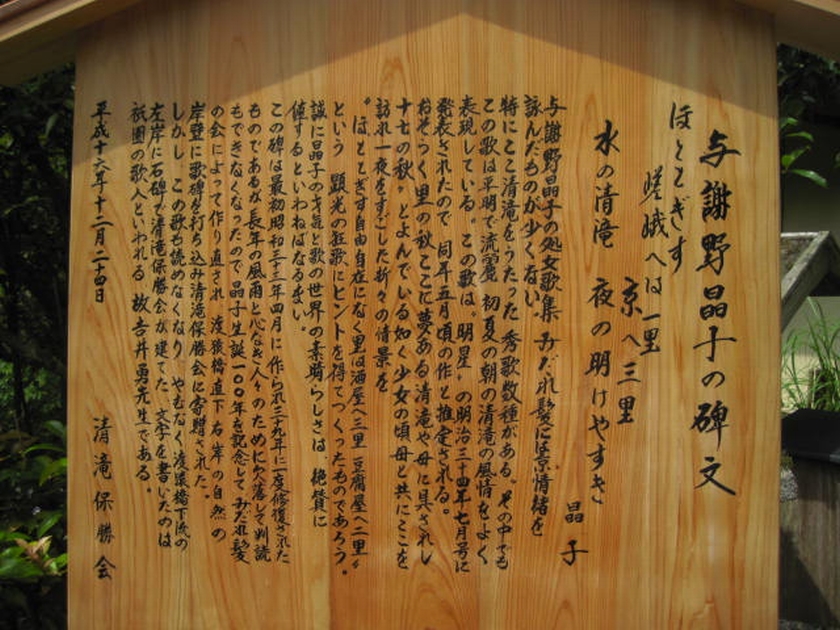 与謝野晶子の碑文
ほととぎす
嵯峨へは一里
京へ三里
水の清滝 夜の明けやすき
晶子
与謝野晶子の処女歌集 みだれ髪には京情緒を
詠んだものが少くない。
特にここ清滝をうたった 秀歌数種がある。その中でも
この歌は平明で流麗 初夏の朝の清滝の風情をよく
表現している。この歌は、明星〟の明治三十四年七月号に
発表されたので 同年五月頃の作と推定される。
おそらく里の秋ここに夢ある清滝や母に具されし
十七の秋〟とよんでいる如く少女の頃母と共にここを
訪れ一夜をすごした折々の情景を
〝ほととぎす自由自在になく里は酒屋へ三里豆腐屋へ二里〟
という 頭光の狂歌にヒントを得てつくったものであろう。
誠に晶子の才気と歌の世界の素晴らしさは、絶賛に
値するといわねばなるまい。
この碑は最初昭和三十三年四月に作られ三十九年に一度修復された
ものであるが長年の風雨と心なき人々のために欠落して判読
もできなくなったので 晶子生誕一〇〇年を記念して みだれ髪
の会によって作り直され 渡猿橋直下右岸の自然の
岸壁に歌碑を打ち込み清滝保勝会に寄贈された。
しかし この歌も読めなくなり やむなく渡猿橋下流の
左岸に石碑が清滝保勝会が建てた。文字を書いたのは
祇園の歌人といわれる 故吉井勇先生である。
平成十六年十二月二十四日
清滝保勝会